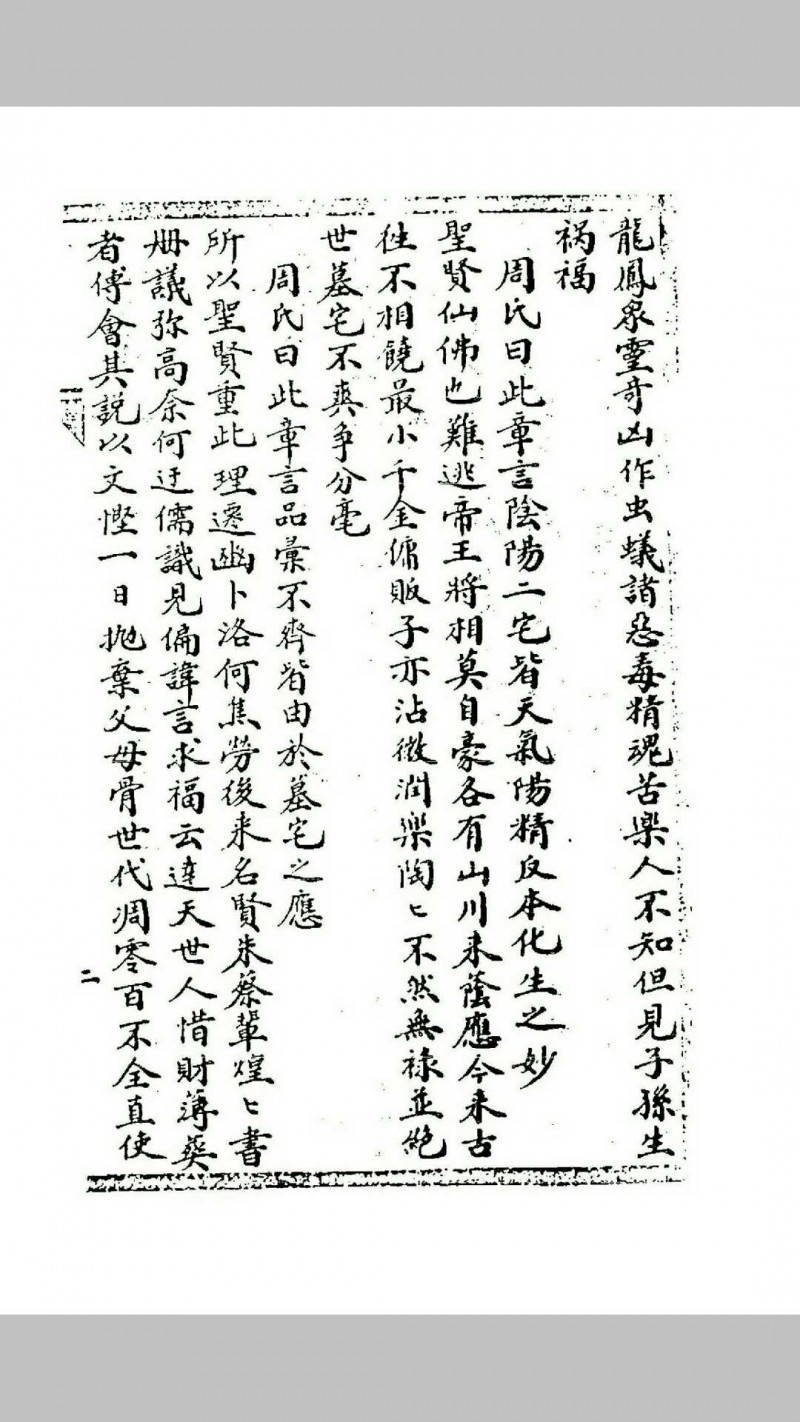 龍鳳衆靈奇凶作虫蟻諸惡毒精魂苦樂人不知但見子孫生
禍福
周氏曰此章言陰陽二宅皆天氣陽精反本化生之妙
聖賢仙佛也難逃帝王將相莫自豪各有山川来蔭應今来古
徃不相饒最小千金傭販子亦沾微潤樂陶〻不然無祿並絶
世墓宅不爽爭分毫
周氏曰此章言品彙不齊皆由於墓宅之應
所以聖賢重此理遷豳卜洛何焦勞後来名賢朱蔡輩煌〻書
册議弥高奈何迂儒識見偏諱言求福云違天世人惜財薄葬
者傅會其説以文慳一日拋棄父母骨世代凋零百不全直使
二